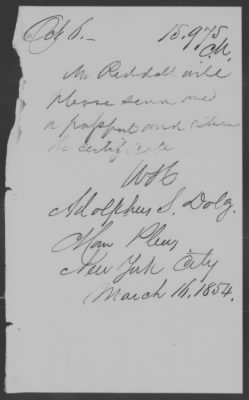 Oct 6.— 15.975
Mr Reddall will
please send me
a passport and return
the certificate.
Adolphus S. Dolz.
New York City
March 16, 1854.